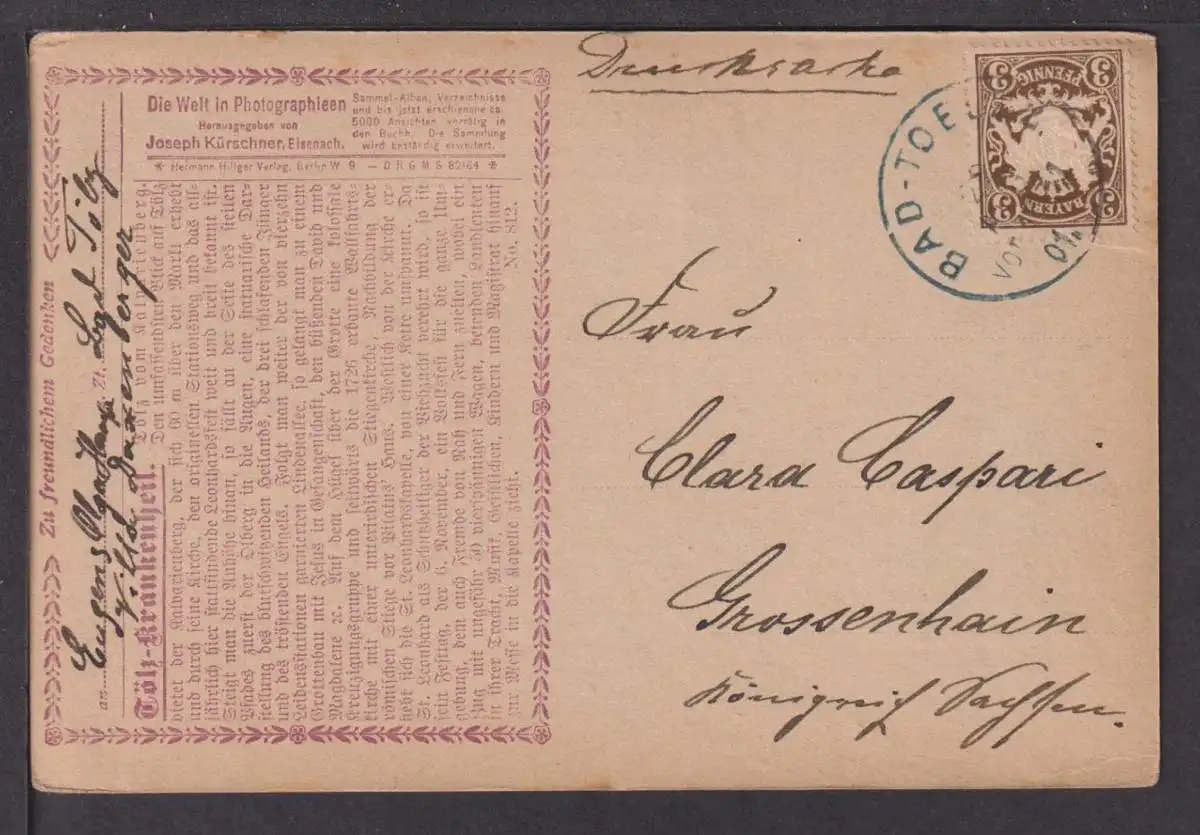 Die Welt in Photographieen
Herausgegeben von
Joseph Kürschner, Eisenach.
Sammel-Alben, Verzeichnisse
und bis jetzt erschienene ca.
5000 Ansichten vorrätig in
den Buchh. Die Sammlung
wird beständig erweitert.
* Hermann Hillger Verlag, Berlin W 9 — D R G M S 82164 *
Zu freundlichem Gedenken
an
Eugens
Zt. Bad Tölz
Villa Daxenberger
Tölz-Krankenheil.
Tölz vom Kalvarienberg.
Den umfassendsten Blick auf Tölz
bietet der Kalvarienberg, der sich 60 m über den Markt erhebt
und durch seine Kirche, den originellen Stationsweg und das all-
jährlich hier stattfindende Leonhardsfest weit und breit bekannt ist.
Steigt man die Anhöhe hinan, so fällt an der Seite des steilen
Pfades zuerst der Ölberg in die Augen, eine statuarische Dar-
stellung des blutschwitzenden Heilands, der drei schlafenden Jünger
und des tröstenden Engels. Folgt man weiter der von vierzehn
Leidensstationen garnierten Lindenallee, so gelangt man zu einem
Grottenbau mit Jesus in Gefangenschaft, den büßenden David und
Magdalene ꝛc. Auf dem Hügel über der Grotte eine kolossale
Kreuzigungsgruppe und seitwärts die 1726 erbaute Wallfahrts-
kirche mit einer unterirdischen Stiegenkirche, Nachbildung der
römischen Stiege vor Pilatus' Haus. Westlich von der Kirche er-
hebt sich die St. Leonhardskapelle, von einer Kette umspannt. Da
St. Leonhard als Schutzheiliger der Viehzucht verehrt wird, so ist
sein Festtag, der 6. November, ein Volksfest für die ganze Um-
gebung, dem auch Fremde von Nah und Fern zueilen, wobei ein
Zug mit ungefähr 50 vierspännigen Wagen, betenden Landleuten
in ihrer Tracht, Musik, Geistlichen, Kindern und Magistrat hinauf
zur Messe in die Kapelle zieht.
No. 812.
Drucksache
3 3
PFENNIG
BAYERN
3 3
BAD-TOE
VOR
01.
Frau
Clara Caspari
Grossenhain
Königreich Sachsen.